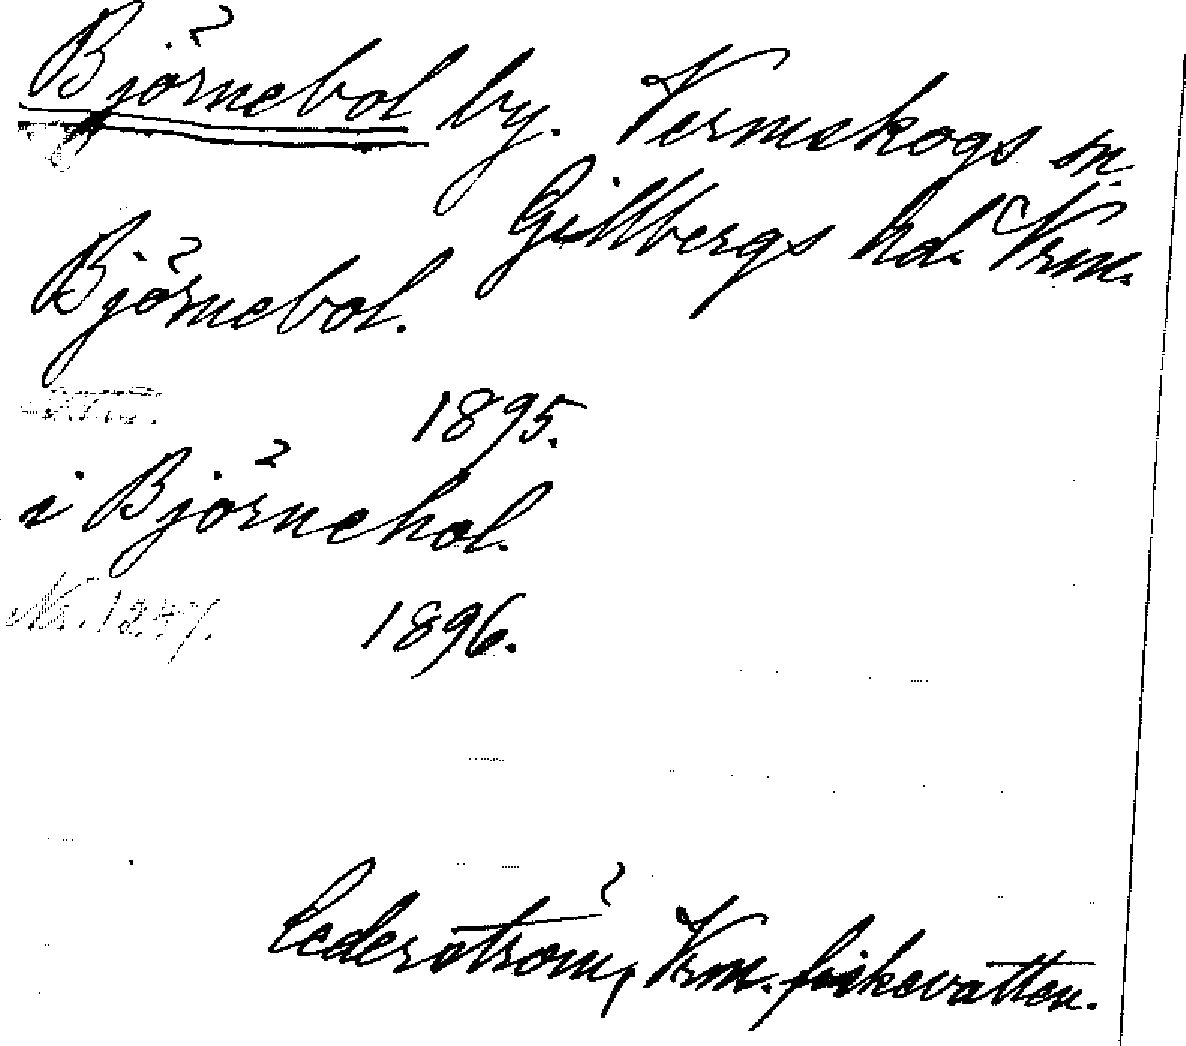 Björnebol by. Vermskogs sn.
Gillbergs hd. Vrm.
Björnebol.
1895.
i Björnebol.
Nr. 1247. 1896.
Cederström, Vrm. fiskevatten.